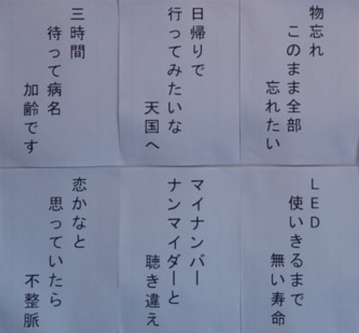 物忘れ
このまま全部
忘れたい
日帰りで
行ってみたいな
天国へ
三時間
待って病名
加齢です
LED
使いきるまで
無い寿命
マイナンバー
ナンマイダーと
聴き違え
恋かなと
思っていたら
不整脈